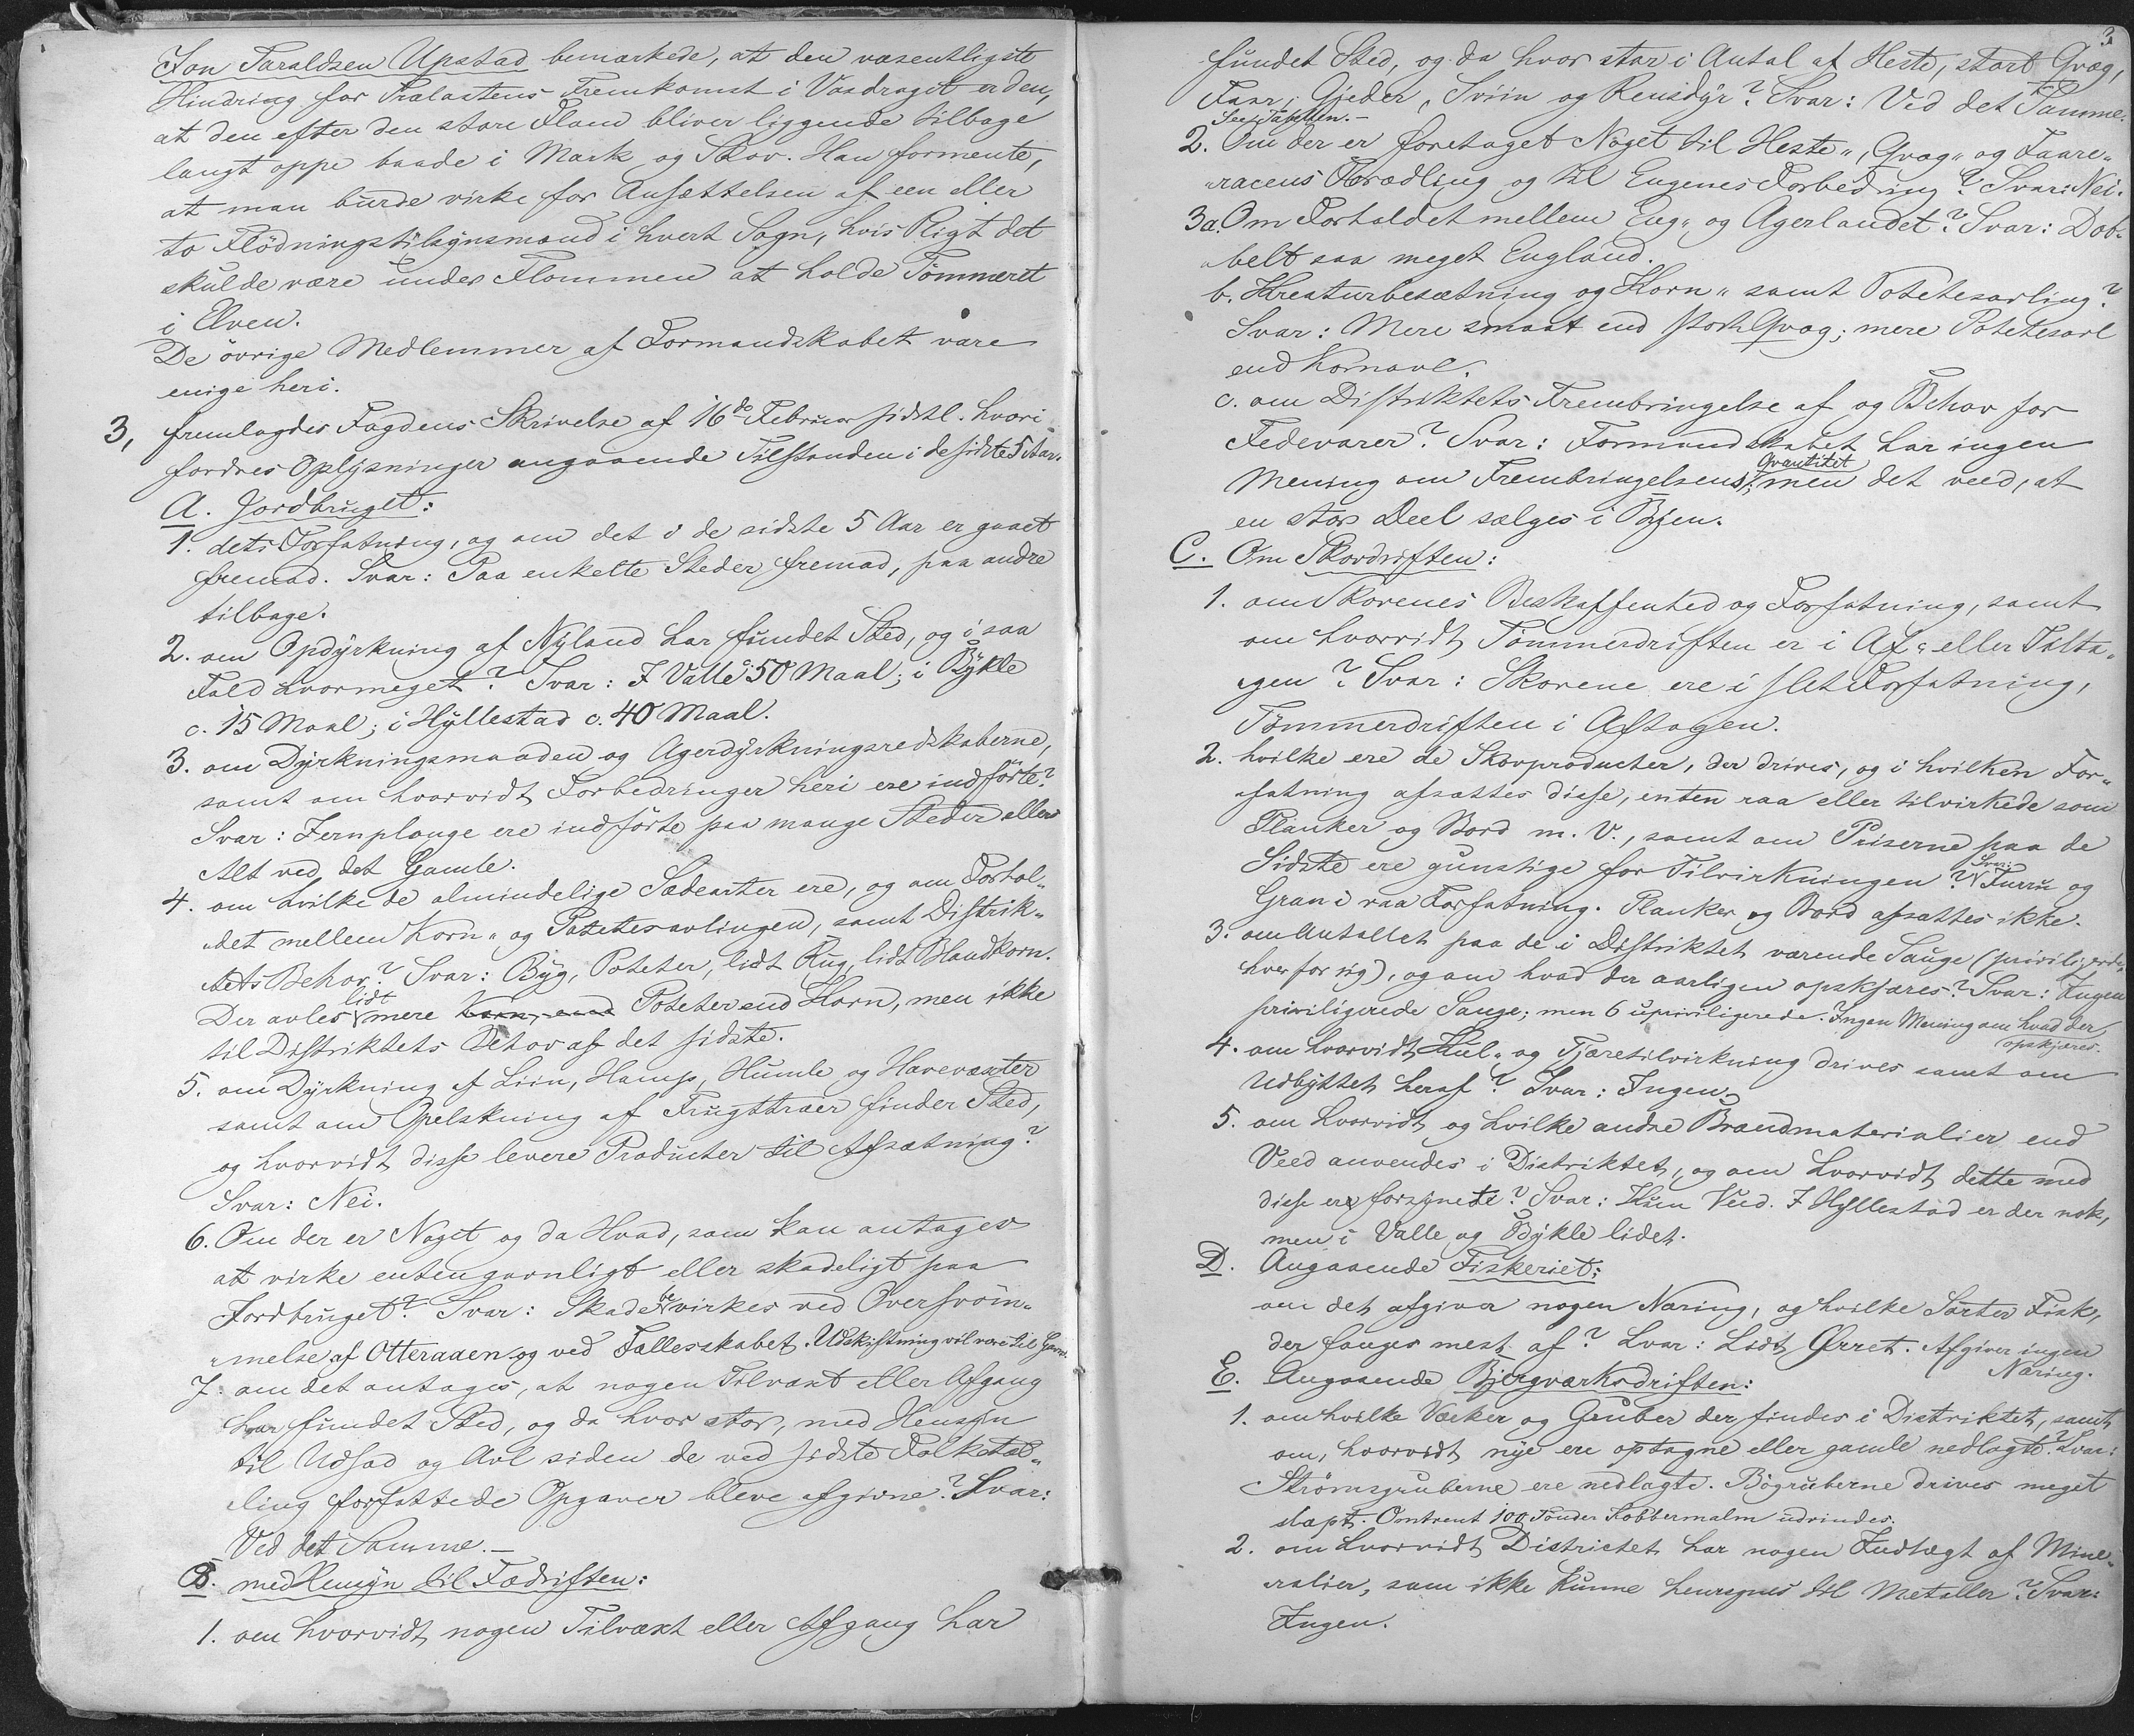 Jon Taraldsen Upstad bemærkede, at den væsentligste
Hindring for Trælastens Fremkomst i Vasdraget er den,
at den efter den store Flom bliver liggende tilbage
langt oppe baade i Mark og Skov. Han formente,
at man burde virke for Ansættelsen af een eller
to Flödningstilsynsmænd i hvert Sogn, hvis Pligt det
skulde være under Flommen at holde Tömmeret
i Elven.
De övrige Medlemmer af Formandskabet vare
enige heri.
3, fremlagdes Fogdens Skrivelse af 16de Februar sidstl. hvori
fordres Oplysninger angaaende Tilstanden i de sidste 5 Aar.
A. Jordbruget:
1. dets Forfatning, og om det i de sidste 5 Aar er gaaet
fremad. Svar: Paa enkelte Steder fremad, paa andre
tilbage.
2. om Opdyrkning af Nyland har fundet Sted, og i saa
Fald hvormeget? Svar: I Valle c. 50 Maal; i Bykle
c. 15 Maal; i Hyllestad c. 40 Maal.
3. om Dyrkningsmaaden og Agerdyrkningsredskaberne,
samt om hvorvidt Forbedringer heri ere indförte?
Svar: Jernplouge ere indförte paa mange Steder ellers
Alt ved det Gamle.
4. om hvilke de almindelige Sædearter ere, og om Forhol-
det mellem Korn- og Potetesavlingen, samt Distrik-
tets Behov? Svar: Byg, Poteter, lidt Rug, lidt Blandkorn.
Der avles lidt mere Korn, end Poteter end Korn, men ikke
til Distriktets Behov af det sidste.
5. om Dyrkning af Liin, Hamp, Humle og Havevæxter
samt om Opelskning af Frugttræer finder Sted,
og hvorvidt disse levere Producter til Afsætning?
Svar: Nei.
6. Om der er Noget og da Hvad, som kan antages
at virke enten gavnligt eller skadeligt paa
Jordbruget? Svar: Skade bevirkes ved Oversvöm-
melse af Otteraaen og ved Fællesskabet. Udskiftning vil være til Gavn.
7. om det antages, at nogen Tilvæxt eller Afgang
har fundet Sted, og da hvor stor, med Hensyn
til Udsæd og Avl siden de ved sidste Folketæl-
ling forfattede Opgaver bleve afgivne? Svar:
Ved det Samme.—
B. med Hensyn til Fædriften:
1. om hvorvidt nogen Tilvæxt eller Afgang har
3
fundet Sted, og da hvor stor i Antal af Heste, stort Qvæg,
Faar, Gjeder, Sviin og Rensdyr? Svar: Ved det Samme.
See Tabellen.—
2. Om der er foretaget Noget til Heste-, Qvæg- og Faare-
racens Forædling og til Engenes Forbedring? Svar: Nei.
3a. Om Forholdet mellem Eng- og Agerlandet? Svar: Dob-
belt saa meget England.
b. Kreaturbesætning og Korn- samt Potetesavling?
Svar: Mere smaat end stort Qvæg; mere Potetesavl
end Kornavl.
c. om Distriktets Frembringelse af og Behov for
Fedevarer? Svar: Formandskabet har ingen
Mening om Frembringelsens Qvantitet; men det veed, at
en stor Deel sælges i Byen.
C. Om Skovdriften:
1. om Skovenes Beskaffenhed og Forfatning, samt
om hvorvidt Tömmerdriften er i Af- eller Tilta-
gen? Svar: Skovene ere i slet Forfatning,
Tömmerdriften i Aftagen.
2. hvilke ere de Skovproducter, der drives, og i hvilken For-
fatning afsættes disse, enten raa eller tilvirkede som
Planker og Bord m. V., samt om Priserne paa de
Sidste ere gunstige for Tilvirkningen? Svar: Furru og
Gran i raa Forfatning. Planker og Bord afsættes ikke.
3. om Antallet paa de i Distriktet værende Sauge (priviligerede,
hver for sig), og om hvad der aarligen opskjæres? Svar: Ingen
priviligerede Sauge; men 6 upriviligerede. Ingen Mening om hvad der
opskjæres.
4. om hvorvidt Kul- og Tjæretilvirkning drives samt om
Udbyttet heraf? Svar: Ingen.
5. om hvorvidt og hvilke andre Brændmaterialier end
Veed anvendes i Distriktet, og om hvorvidt dette med
disse ere forsynede? Svar: Kun Veed. I Hyllestad er der nok,
men i Valle og Bykle lidet.
D. Angaaende Fiskeriet:
om det afgiver nogen Næring, og hvilke Sorter Fisk,
der fanges mest af? Svar: Lidt Ørret. Afgiver ingen
Næring.
E. Angaaende Bjergværksdriften:
1. om hvilke Værker og Gruber der findes i Distriktet, samt
om, hvorvidt nye ere optagne eller gamle nedlagte? Svar:
Strömsgruberne ere nedlagte. Bögruberne drives meget
slapt. Omtrent 100 Tönder Kobbermalm udvindes.
2. om hvorvidt Districtet har nogen Indtægt af Mine-
ralier, som ikke kunne henregnes til Metaller? Svar:
Ingen.